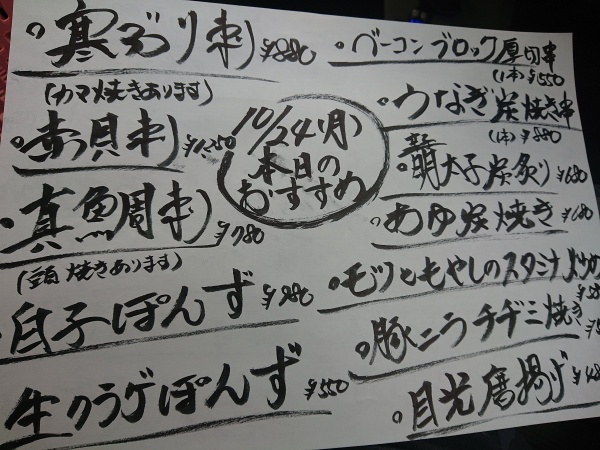 寒ぶり刺 ¥880
(カマ焼きあります)
赤貝刺 ¥1,250
真鯛刺 ¥780
(頭焼きあります)
白子ぽんず ¥980
生クラゲぽんず ¥550
10/24(月)
本日の
おすすめ
ベーコンブロック厚切串
(1本)¥550
うなぎ炭焼き串
(1本)¥880
明太子炭炙り ¥680
あゆ炭焼き ¥680
モツともやしのスタミナ
豚ニラチヂミ焼き
目光唐揚げ